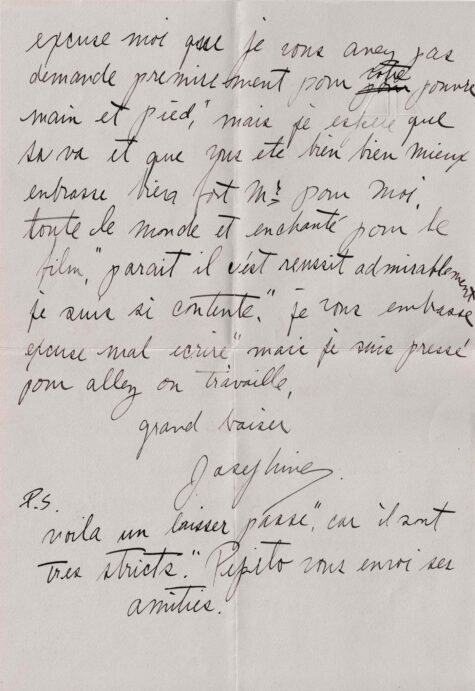 excuse moi que je vous avez pas
demande premisement pour votre pauvre
main et pied," mais je espere que
sa va et que vous ete bien bien mieux
enbrasse bien fort Mr pour moi,
toute le monde et enchanté pour le
film," parait il c'est reussit admirablement
je suis si contente." je vous embrasse
excuse mal ecrire" mais je suis pressé
pour allez on travaille,
grand baiser
Josephine
P.S.
voila un laisser passé", car il sont
tres stricts." Pepito vous envoi ses
amities.